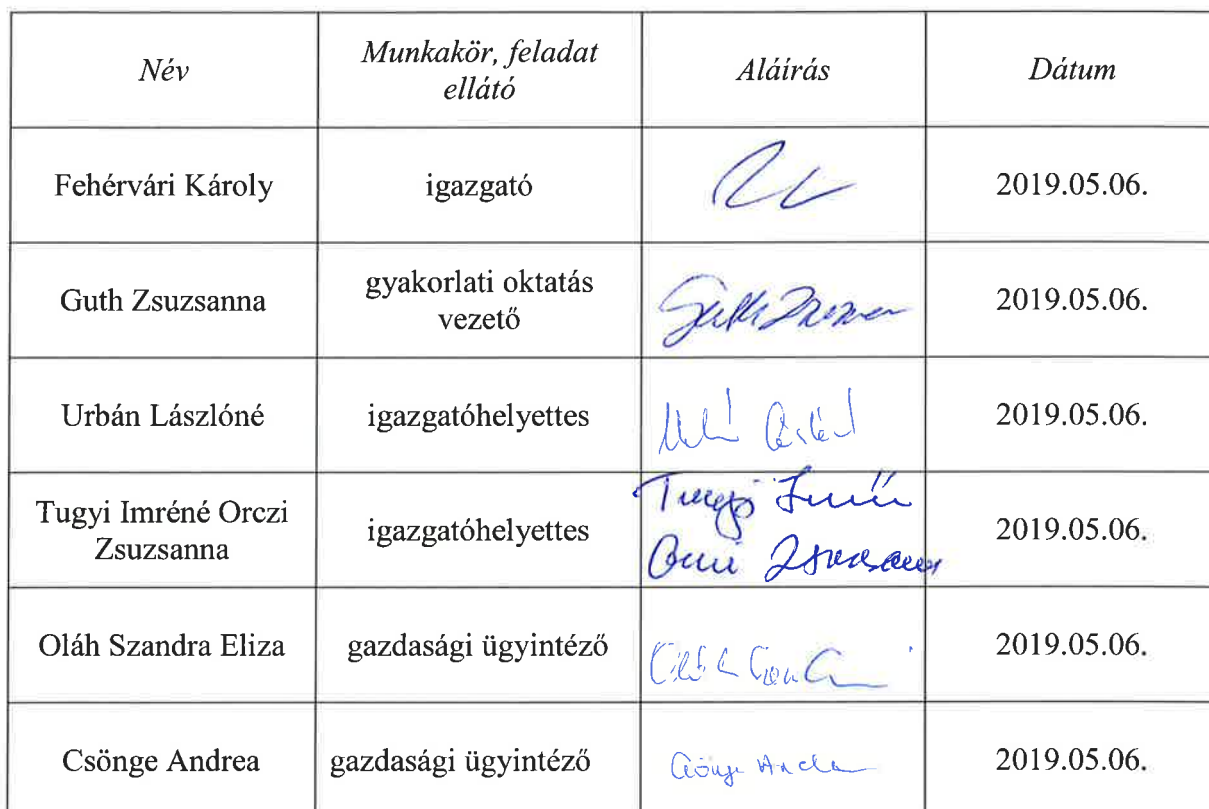 Név Munkakör, feladat ellátó Aláírás Dátum
Fehérvári Károly igazgató 2019.05.06.
Guth Zsuzsanna gyakorlati oktatás vezető Guth Zsuzsanna 2019.05.06.
Urbán Lászlóné igazgatóhelyettes 2019.05.06.
Tugyi Imréné Orczi Zsuzsanna igazgatóhelyettes Tugyi Imréné Orczi Zsuzsanna 2019.05.06.
Oláh Szandra Eliza gazdasági ügyintéző 2019.05.06.
Csönge Andrea gazdasági ügyintéző Csönge Andrea 2019.05.06.